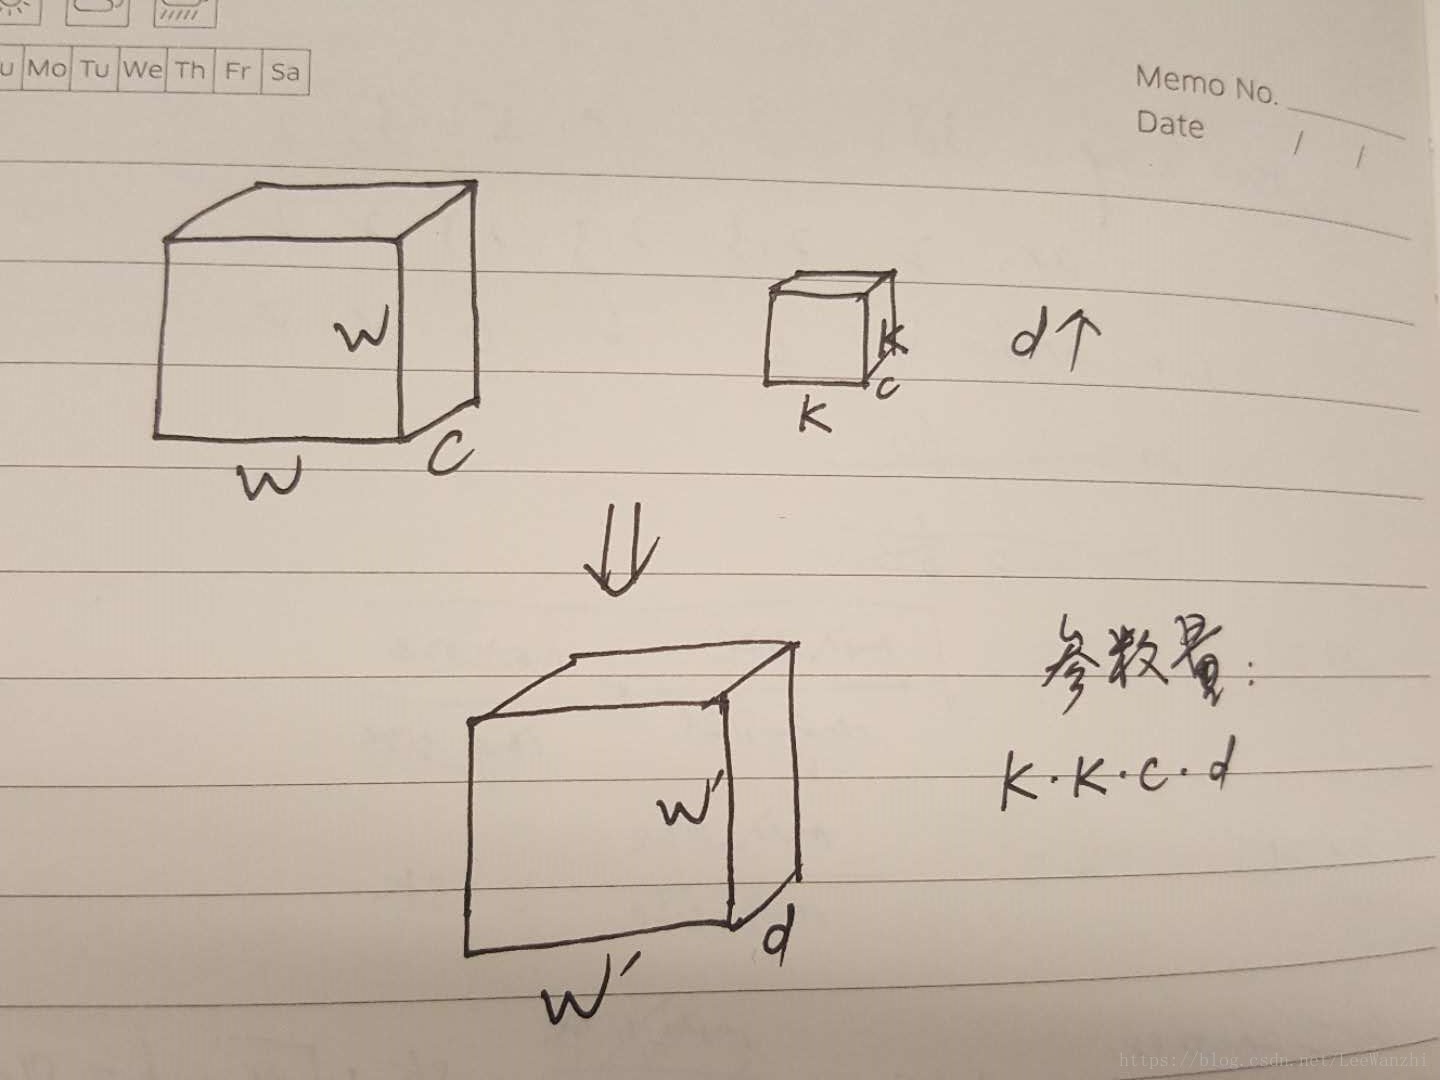 u Mo Tu We Th Fr Sa
Memo No.
Date / /
W
W
C
K
C
K
d↑
W'
W'
d
参数量:
K·K·C·d
https://blog.csdn.net/LeeWanzhi